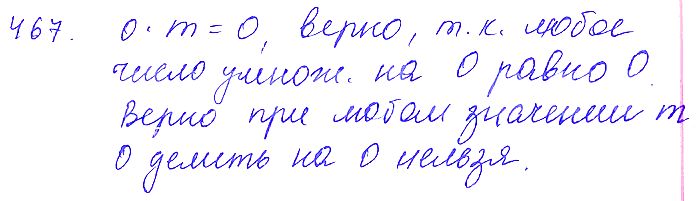 467. 0 · m = 0, верно, т.к. любое
число умнож. на 0 равно 0.
Верно при любом значении m
0 делить на 0 нельзя.